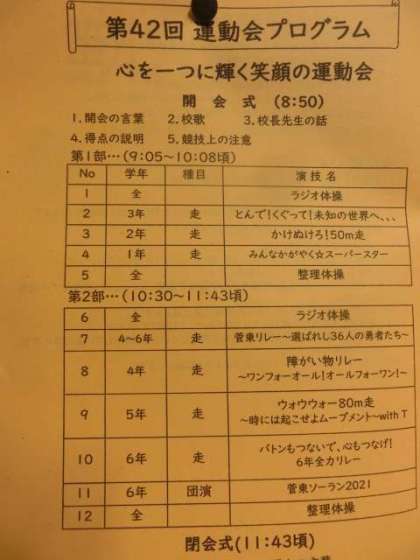 第42回 運動会プログラム
心を一つに輝く笑顔の運動会
開 会 式 (8:50)
1.開会の言葉 2.校歌 3.校長先生の話
4.得点の説明 5.競技上の注意
第1部…(9:05~10:08頃)
No 学年 種目 演技名
1 全 ラジオ体操
2 3年 走 とんで!くぐって!未知の世界へ、、、
3 2年 走 かけぬけろ!50m走
4 1年 走 みんなかがやく☆スーパースター
5 全 整理体操
第2部…(10:30~11:43頃)
6 全 ラジオ体操
7 4~6年 走 菅東リレー~選ばれし36人の勇者たち~
8 4年 走 障がい物リレー
~ワンフォーオール!オールフォーワン!~
9 5年 走 ウォウウォー80m走
~時には起こせよムーブメント~with T
10 6年 走 バトンもつないで、心もつなげ!
6年全力リレー
11 6年 団演 菅東ソーラン2021
12 全 整理体操
閉会式(11:43頃)